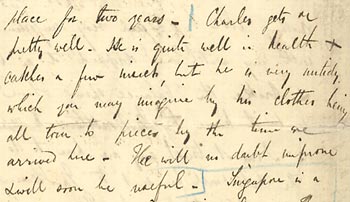 place for two years – Charles gets on
pretty well – He is quite well in health &
catches a few insects, but he is very untidy,
which you may imagine by his clothes being
all torn to pieces by the time we
arrived here – He will no doubt improve
& will soon be useful – Singapore is a